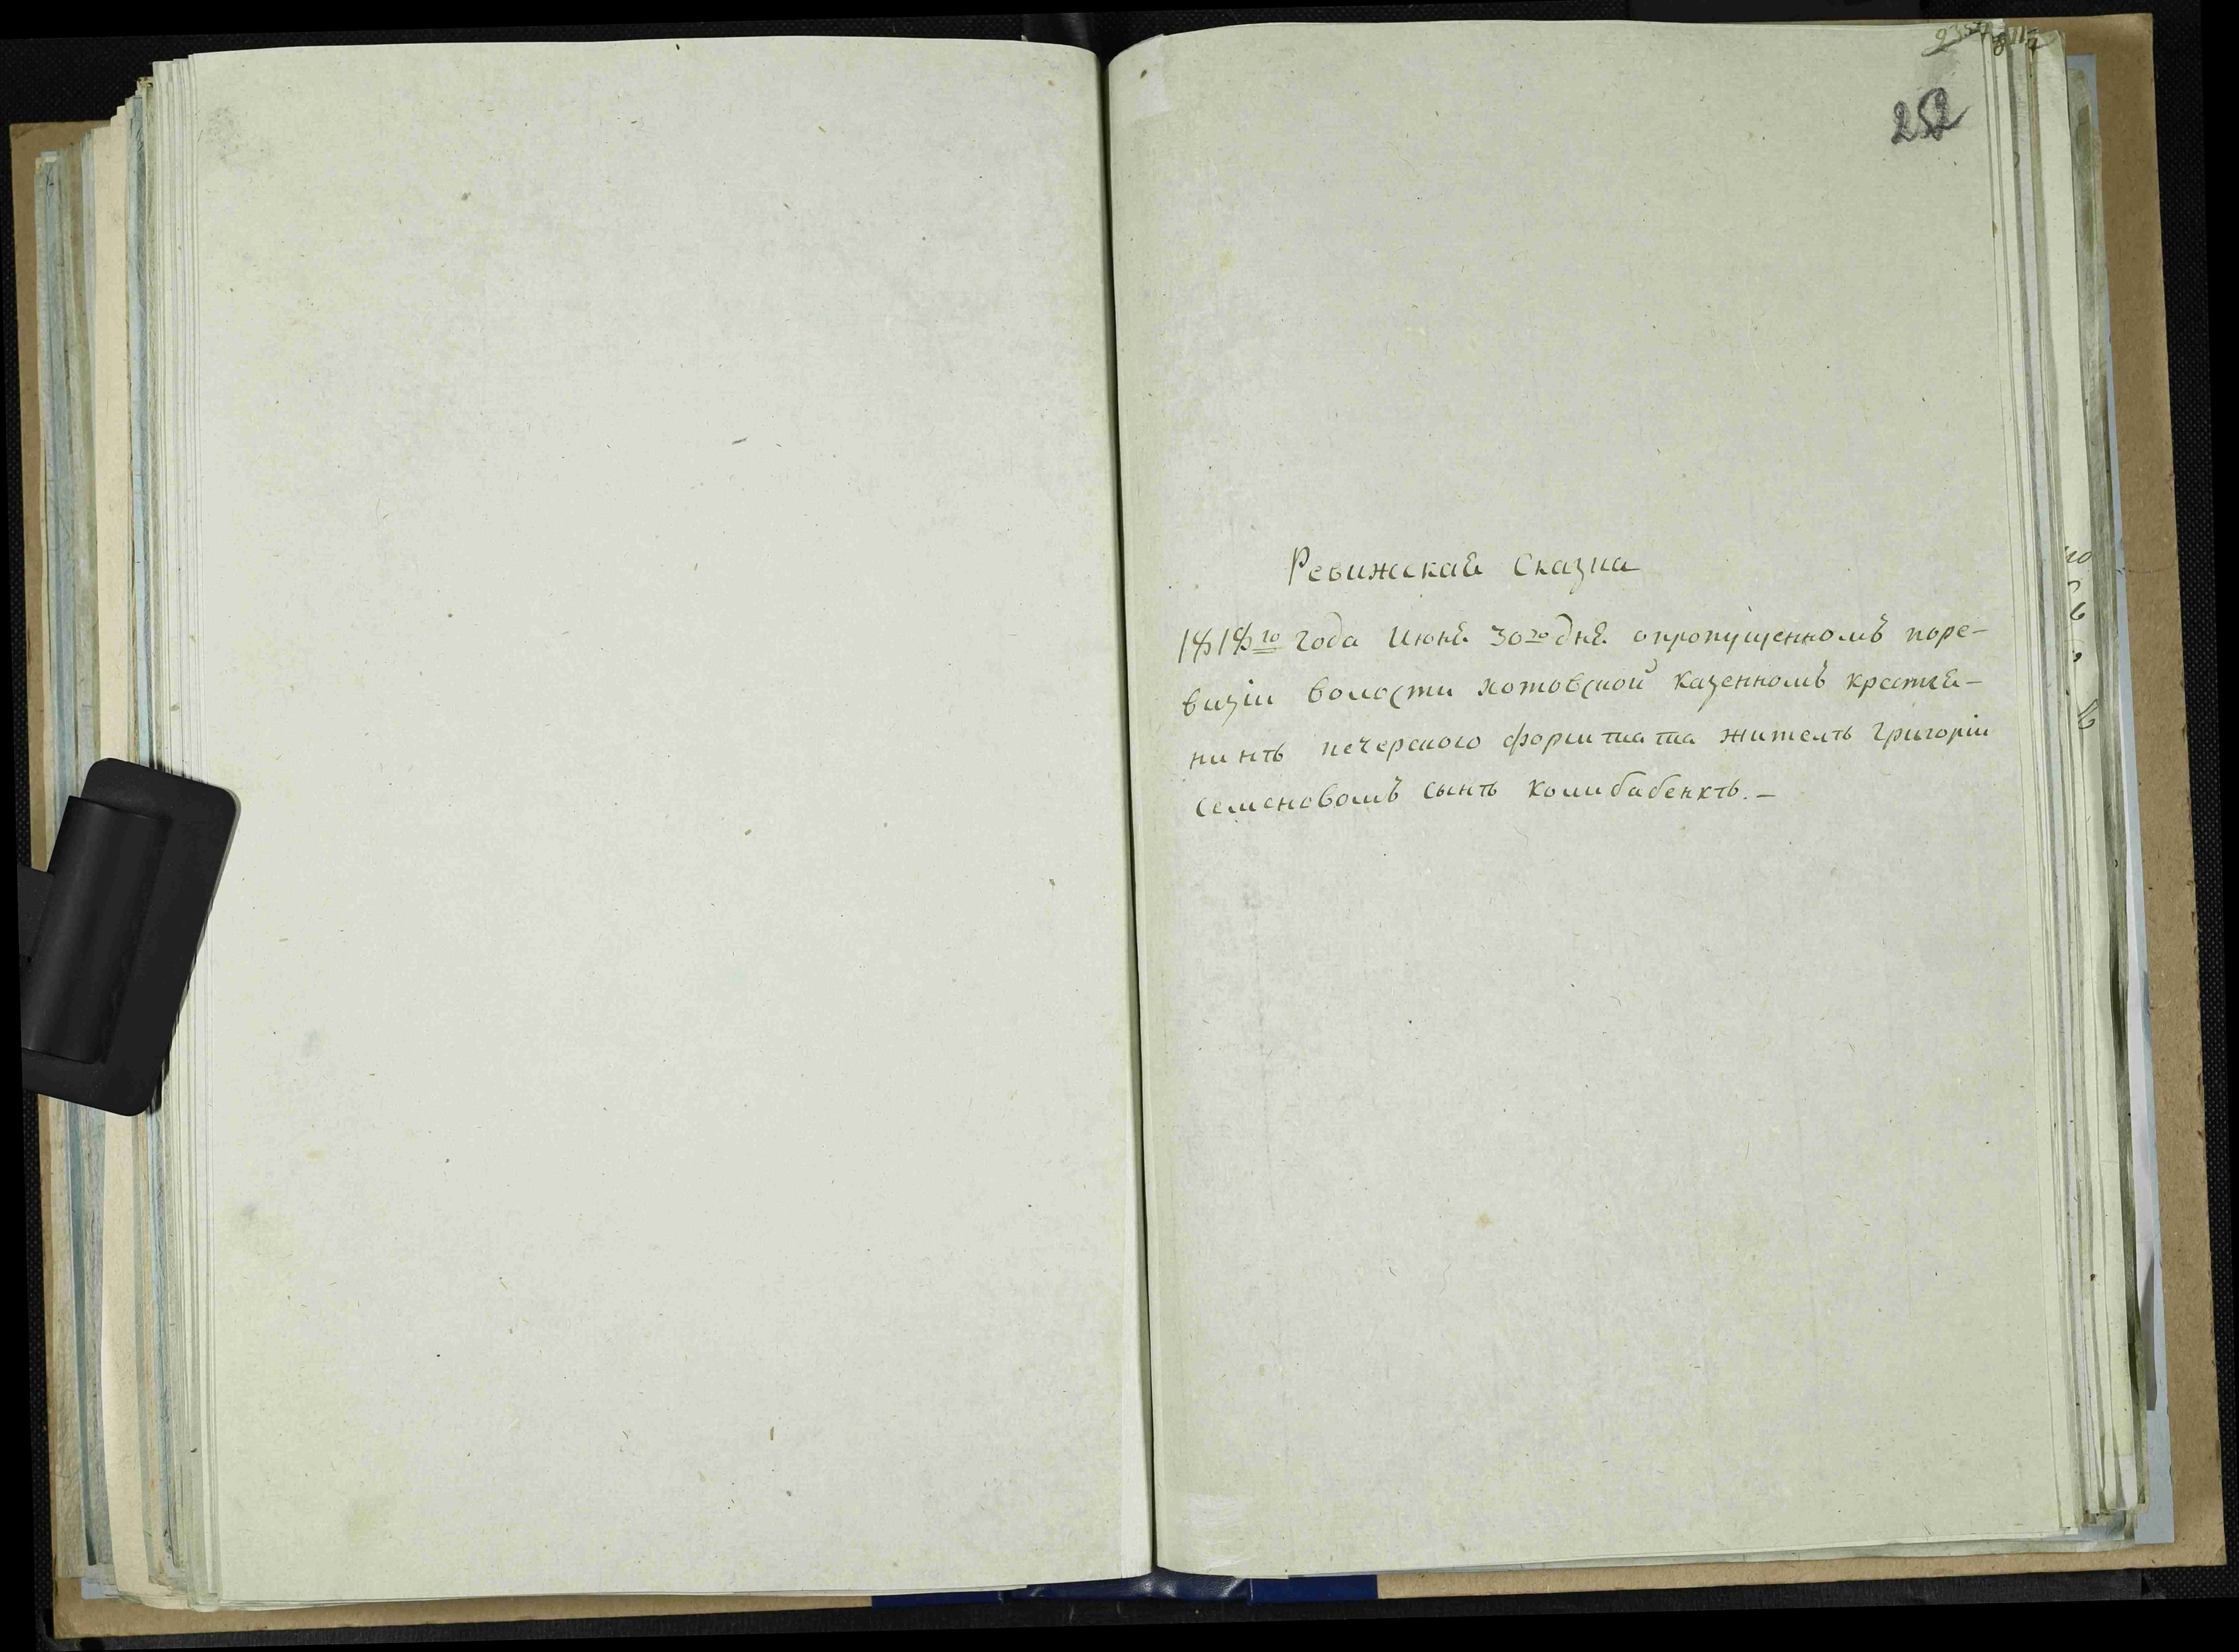 252
Ревижская Сказка
1818го года Июня 30го дня опропущенномъ поре-
визіи волости хотовской казенномъ крестья-
нинѣ печерского форштата жителѣ Григоріи
Семеновомъ сынѣ Колибабенкѣ.-